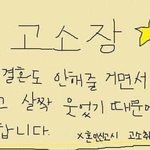 고소장
결혼도 안해줄 거면서
고 살짝 웃었기 때문에
합니다. x혼인신고시 고소취